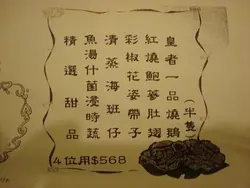 皇者一品燒鵝(半隻)
紅燒鮑蔘肚翅
彩椒花姿帶子
清蒸海班仔
魚湯什菌浸時蔬
精選甜品
4位用$568